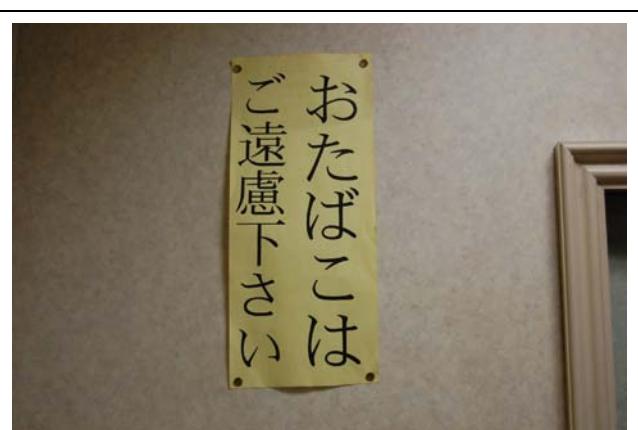 おたばこは
ご遠慮下さい